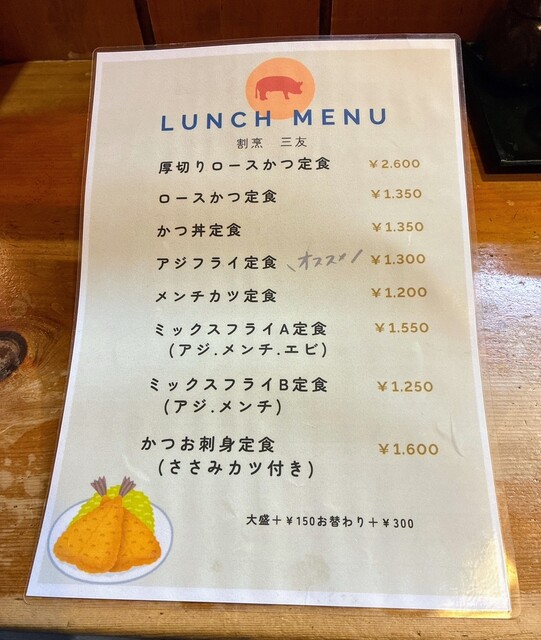 LUNCH MENU
割烹 三友
厚切りロースかつ定食 ￥2.600
ロースかつ定食 ￥1.350
かつ丼定食 ￥1.350
アジフライ定食 ＼オススメ/ ￥1.300
メンチカツ定食 ￥1.200
ミックスフライA定食 ￥1.550
(アジ.メンチ.エビ)
ミックスフライB定食 ￥1.250
(アジ.メンチ)
かつお刺身定食 ￥1.600
(ささみカツ付き)
大盛＋￥150お替わり＋￥300